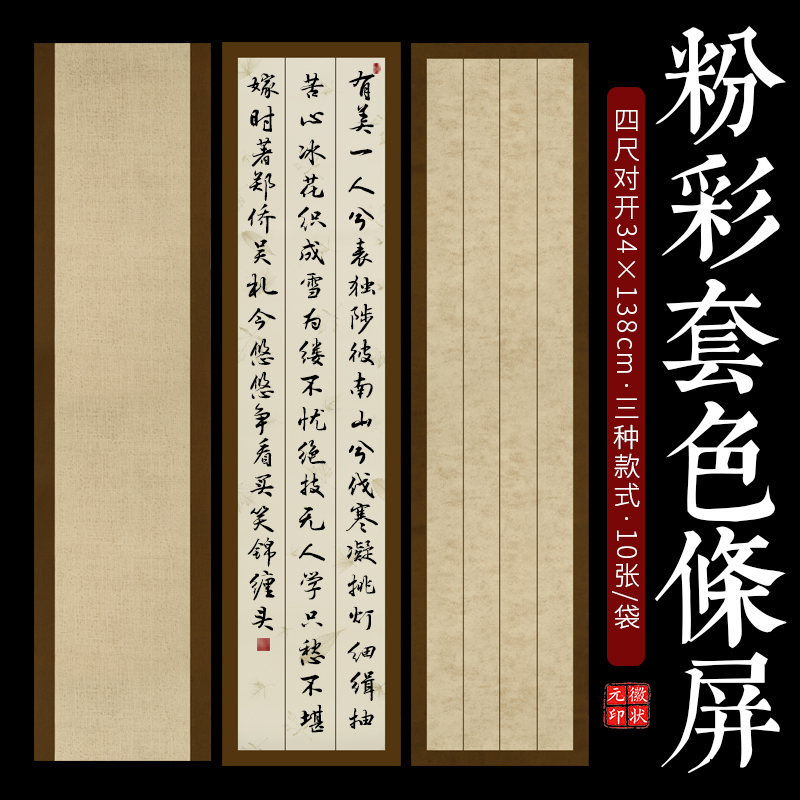 粉彩套色條屏
四尺对开34×138cm·三种款式·10张/袋
徽状
元印
有美一人兮表独陟彼南山兮伐寒凝挑灯细缉抽
苦心冰花织成雪为缕不忧绝技无人学只愁不堪
嫁时著郑侨吴札今悠悠争看买笑锦缠头